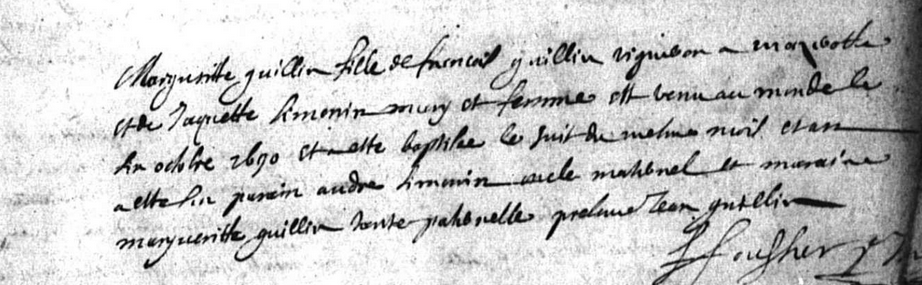 Margueritte guillin fille de francois guillin vigneron a marcotte
et de Jaquette Simonin mary et femme est venu au monde le
six octobre 1690 et a este baptisee le huit du mesme mois et an
a este son parain andre Simonin oncle maternel et maraine
margueritte guillin tante paternelle presence Jean guillin